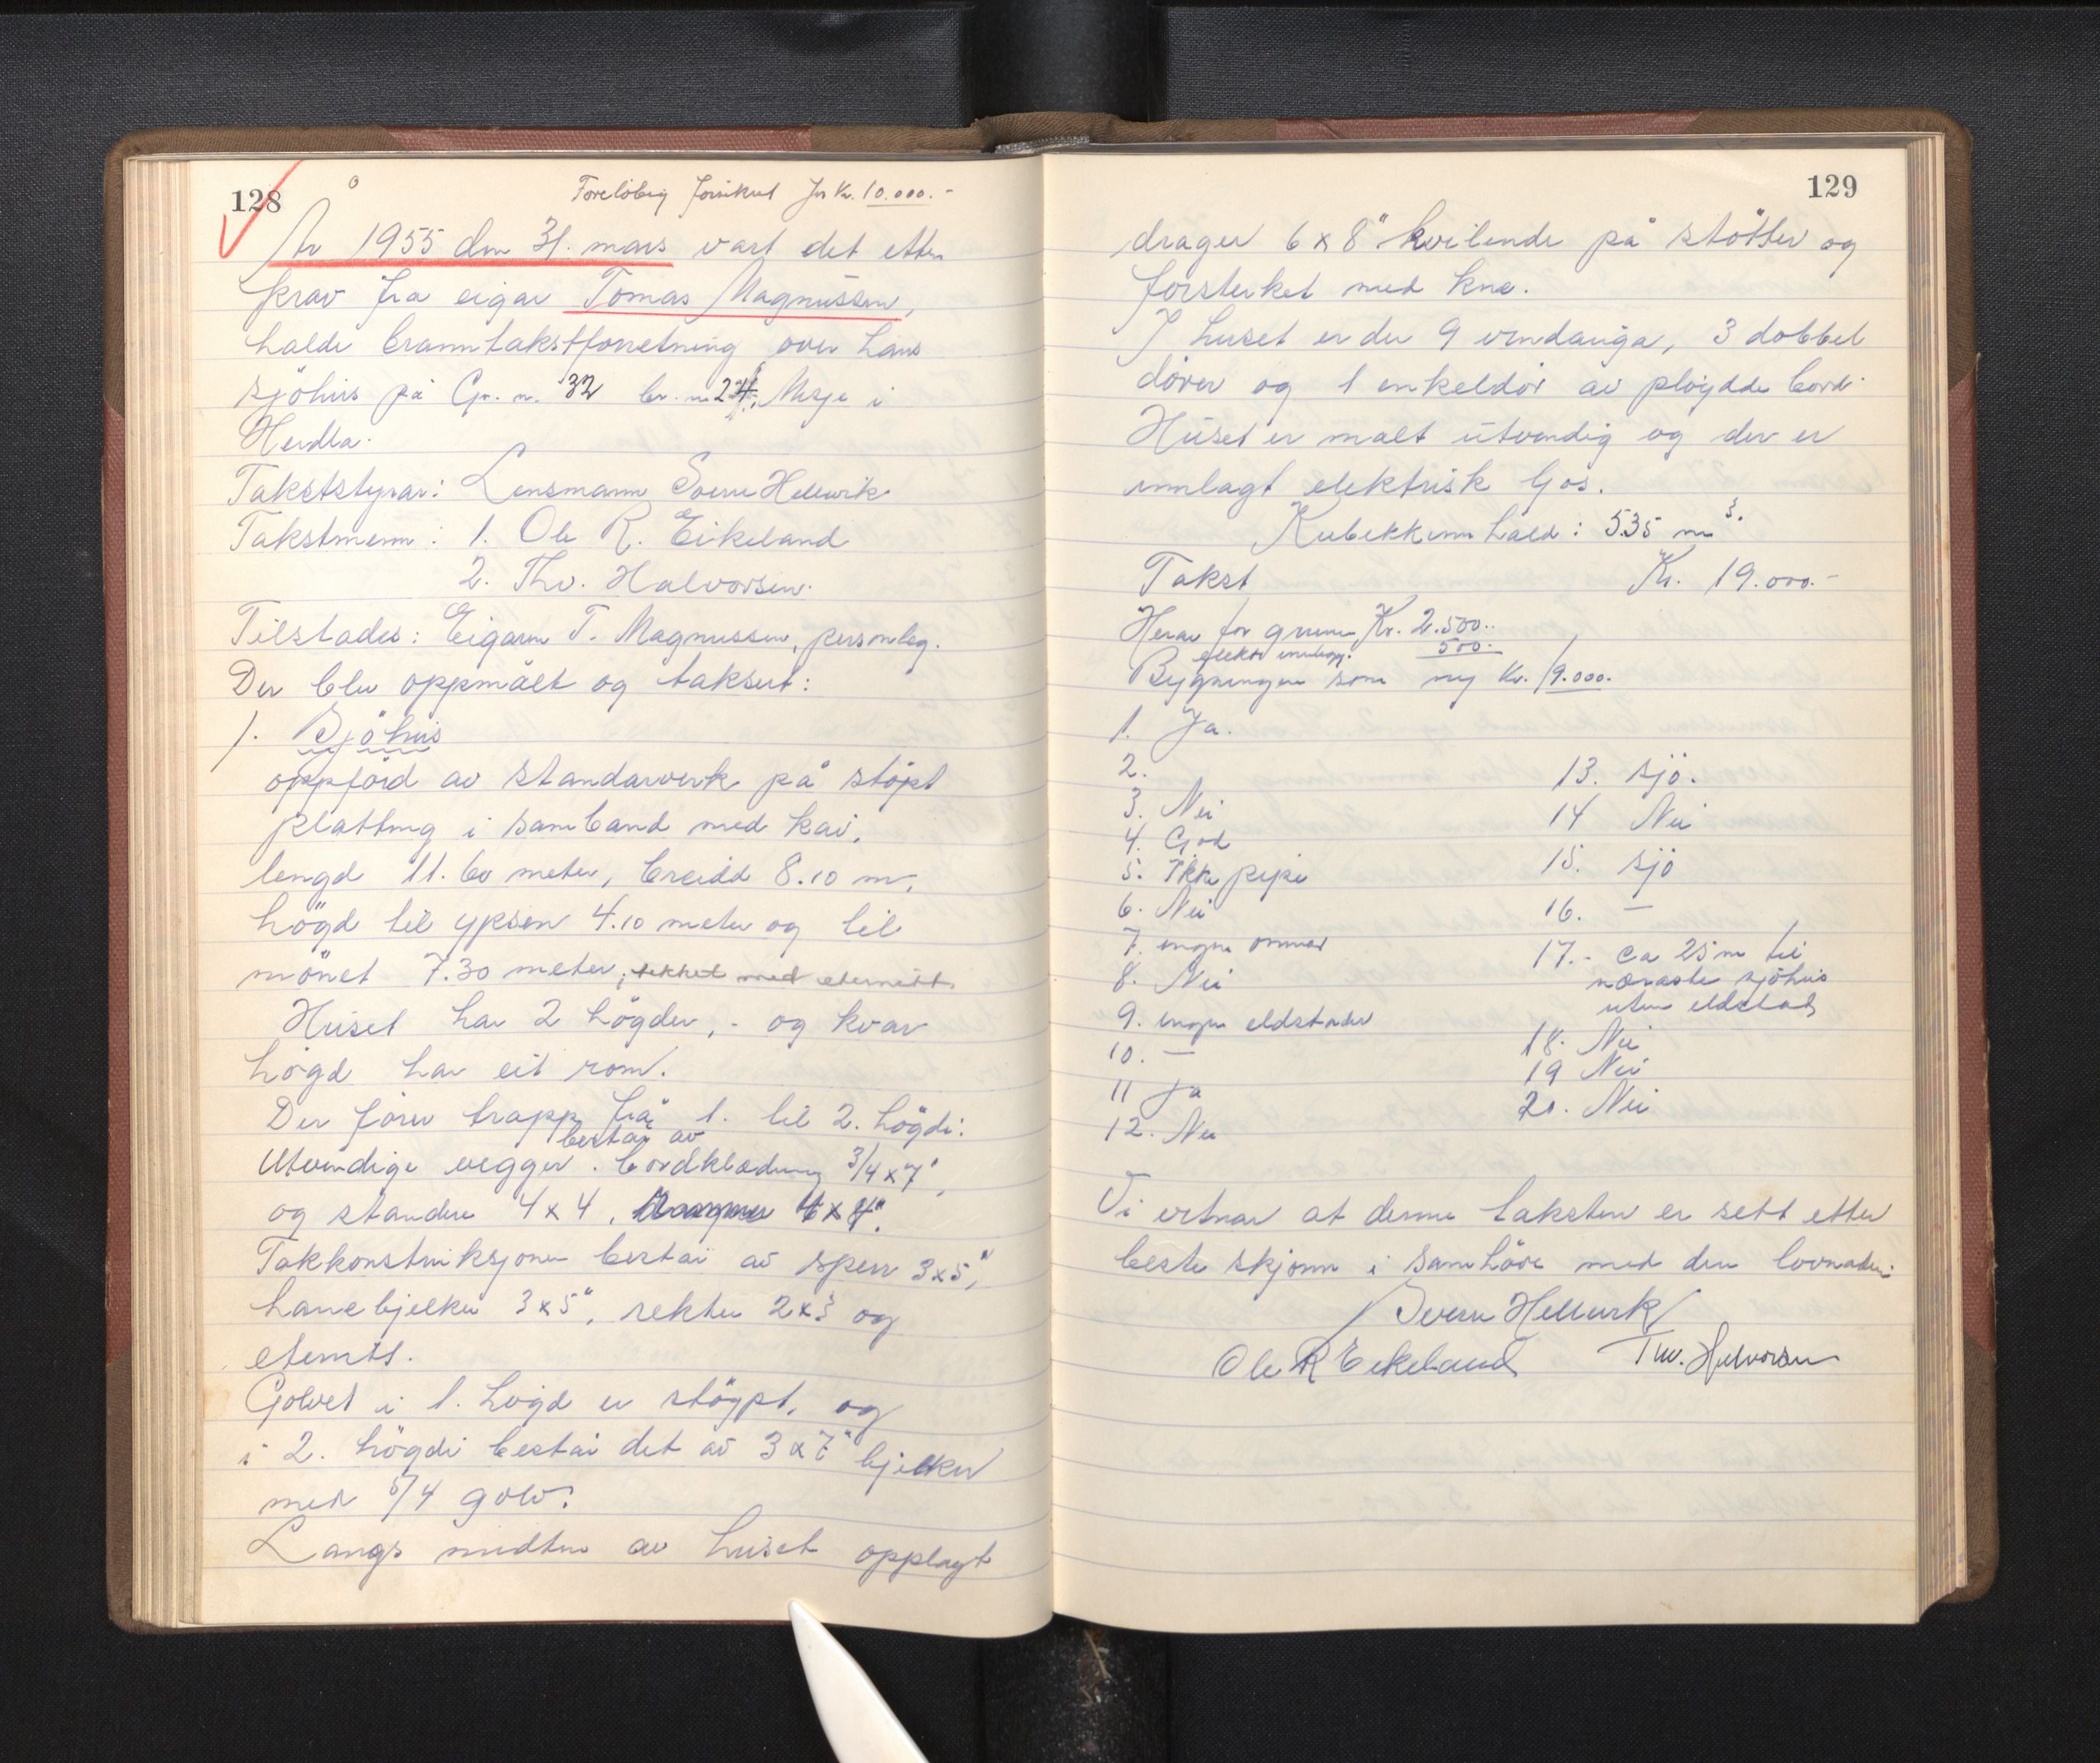 128
Foreløbig forsikret for Kr. 10.000.-
År 1955 den 31. mars vart det etter
krav fra eigar Tomas Magnussen,
halde branntakstforretning over hans
sjöhus på Gr. n. 32 br. n. 24, Misje i
Herdla.
Takststyrar: Lensmann Sverre Hellevik
Takstmenn: 1. Ole R. Eikeland
2. Thv. Halvorsen.
Tilstades: Eigaren T. Magnussen, personleg.
Der blev oppmålt og taksert:
1. Sjöhus
oppförd av standarverk på støpt
platting i samband med kai,
lengd 11.60 meter, breidd 8.10 m,
högd til ypsen 4.10 meter og til
mönet 7.30 meter, tekket med eternitt.
Huset har 2 högder, - og kvar
högd har eit rom.
Der förer trapp frå 1. til 2. högdi.
består av
Utvendige vegger. bordkledning 3/4x7",
og standere 4x4, 4x4".
Takkonstruksjonen består av sperr 3x5",
hanebjelker 3x5", rekter 2x3 og
eternitt.
Golvet i 1. högd er stöypt, og
i 2. högdi består det av 3x7" bjelker
med 5/4 golv.
Langs midten av huset opplagt
129
drager 6x8" kvilende på stötter og
forsterket med kne.
I huset er der 9 vindauga, 3 dobbel
dörer og 1 enkeldör av pløydde bord.
Huset er malt utvendig og der er
innlagt elektrisk ljos.
Kubikkinnhald: 535 m3.
Takst Kr. 19.000.-
Herav for grunn Kr. 2.500..
elektr innlegg. 500.-
Bygningen som ny Kr. 19.000.
1. Ja.
2.
3. Nei
4. God
5. Ikke pipe
6. Nei
7. ingen omnar
8. Nei
9. ingen eldstader
10. —
11 Ja
12. Nei
13. sjö.
14 Nei
15. sjö
16. —
17.- ca 25 m til
næraste sjöhus
uten eldstad
18. Nei
19 Nei
20. Nei
Vi vitnar at denne taksten er sett etter
beste skjønn i samhöve med den lovnaden.
Sverre Hellevik
Ole R Eikeland Thv. Halvorsen